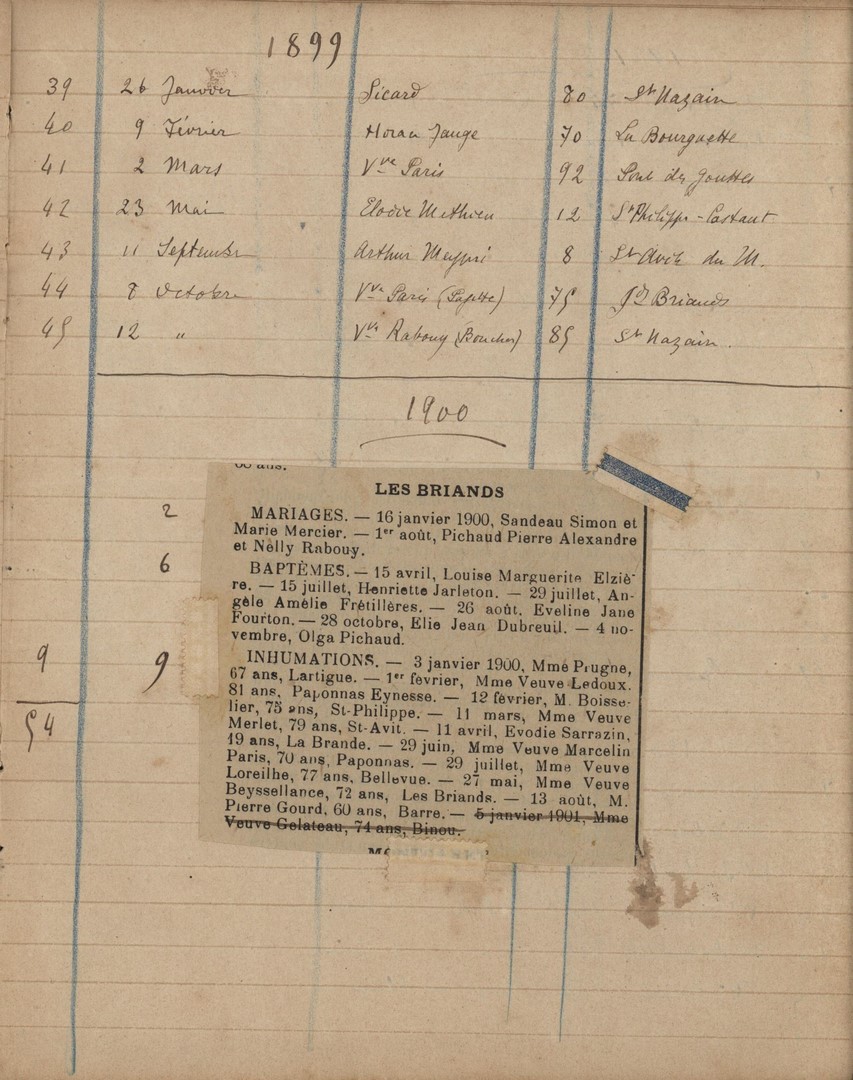 1899
39 26 Janvier Sicard 80 St Nazain
40 9 Février Moreau Jauge 70 La Bourguette
41 2 Mars Vve Paris 92 Pont des Gouttes
42 23 Mai Elodie Methieu 12 St Philippe - Castant
43 11 Septembre Arthur 8 St Avit du M.
44 8 Octobre Vve Paris 75 Gds Briands
45 12 " Vve Rabouy (Boucher) 85 St Nazain.
1900
60 ans.
LES BRIANDS
2
MARIAGES. — 16 janvier 1900, Sandeau Simon et
Marie Mercier. — 1er août, Pichaud Pierre Alexandre
et Nelly Rabouy.
6
BAPTÊMES. — 15 avril, Louise Marguerite Elziè-
re. — 15 juillet, Henriette Jarleton. — 29 juillet, An-
gèle Amélie Frétillères. — 26 août. Eveline Jane
Fourton. — 28 octobre, Elie Jean Dubreuil. — 4 no-
vembre, Olga Pichaud.
9 9
INHUMATIONS. — 3 janvier 1900, Mme Prugne,
67 ans, Lartigue. — 1er février, Mme Veuve Ledoux.
81 ans, Paponnas Eynesse. — 12 février, M. Boisse-
lier, 75 ans, St-Philippe. — 11 mars, Mme Veuve
Merlet, 79 ans, St-Avit. — 11 avril, Evodie Sarrazin,
19 ans, La Brande. — 29 juin, Mme Veuve Marcelin
Paris, 70 ans, Paponnas. — 29 juillet, Mme Veuve
Loreilhe, 77 ans, Bellevue. — 27 mai, Mme Veuve
Beyssellance, 72 ans, Les Briands. — 13 août, M.
Pierre Gourd, 60 ans, Barre. — 5 janvier 1901, Mme
Veuve Gelateau, 74 ans, Binou.
54